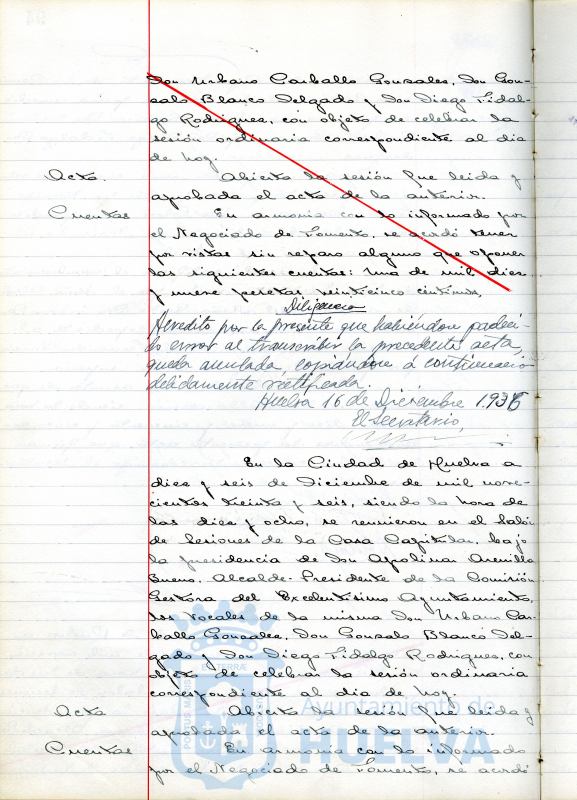 Don Urbano Carballo Gonzalez, Don Gon-
zalo Blanco Delgado y Don Diego Fidal-
go Rodriguez, con objeto de celebrar la
sesión ordinaria correspondiente al dia
de hoy.
Acta. Abierta la sesión fue leida y
aprobada el acta de la anterior.
Cuentas En armonia con lo informado por
el Negociado de Fomento, se acordó tener
por vistas sin reparo alguno que oponer
las siguientes cuentas: Una de mil diez
y nueve pesetas veinticinco céntimos,
Diligencia
Acredito por la presente que habiéndose padeci-
do error al transcribir la precedente acta,
queda anulada, copiándose á continuación
debidamente rectificada.
Huelva 16 de Diciembre 1.936
El Secretario,
En la Ciudad de Huelva a
diez y seis de Diciembre de mil nove-
cientos treinta y seis, siendo la hora de
las diez y ocho, se reunieron en el Salón
de Sesiones de la Casa Capitular, bajo
la presidencia de Don Apolinar Arenilla
Bueno, Alcalde-Presidente de la Comisión
Gestora del Excelentísimo Ayuntamiento,
los vocales de la misma Don Urbano Car-
ballo Gonzalez, Don Gonzalo Blanco Del-
gado y Don Diego Fidalgo Rodriguez, con
objeto de celebrar la sesión ordinaria
correspondiente al dia de hoy.
Acta Abierta la sesión fue leida y
aprobada el acta de la anterior.
Cuentas En armonia con lo informado
por el Negociado de Fomento, se acordó
Ayuntamiento de
HUELVA